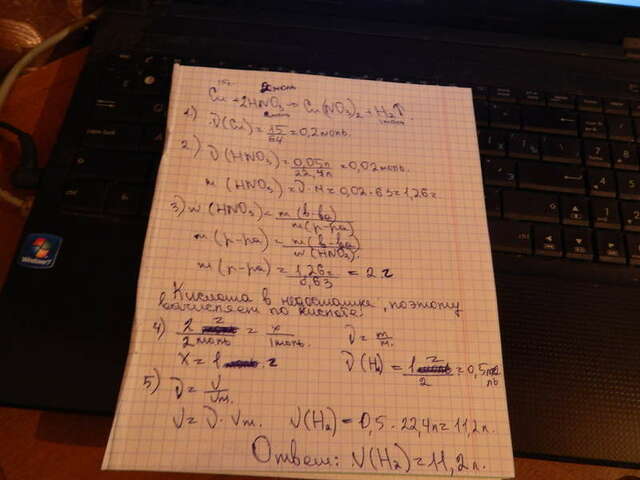 15г 2моль
Cu + 2HNO3 → Cu(NO3)2 + H2↑
2моль 1моль
1.) ν(Cu) = 15/64 = 0,2моль.
2.) ν(HNO3) = 0,05л/22,4л = 0,02моль.
m(HNO3) = ν · M = 0,02 · 63 = 1,26г
3) w(HNO3) = m(в-ва)/m(р-ра)
m(р-ра) = m(в-ва)/w(HNO3).
m(р-ра) = 1,26г/0,63 = 2 г
Кислота в недостатке, поэтому
вычисляем по кислоте.
4) 2 г/2моль = x/1моль. ν = m/m.
x = 1 г ν(H2) = 1 г/2 = 0,5моль
5) ν = V/Vm.
V = ν · Vm. V(H2) = 0,5 · 22,4л = 11,2л.
Ответ: V(H2) = 11,2л.
Windows 7